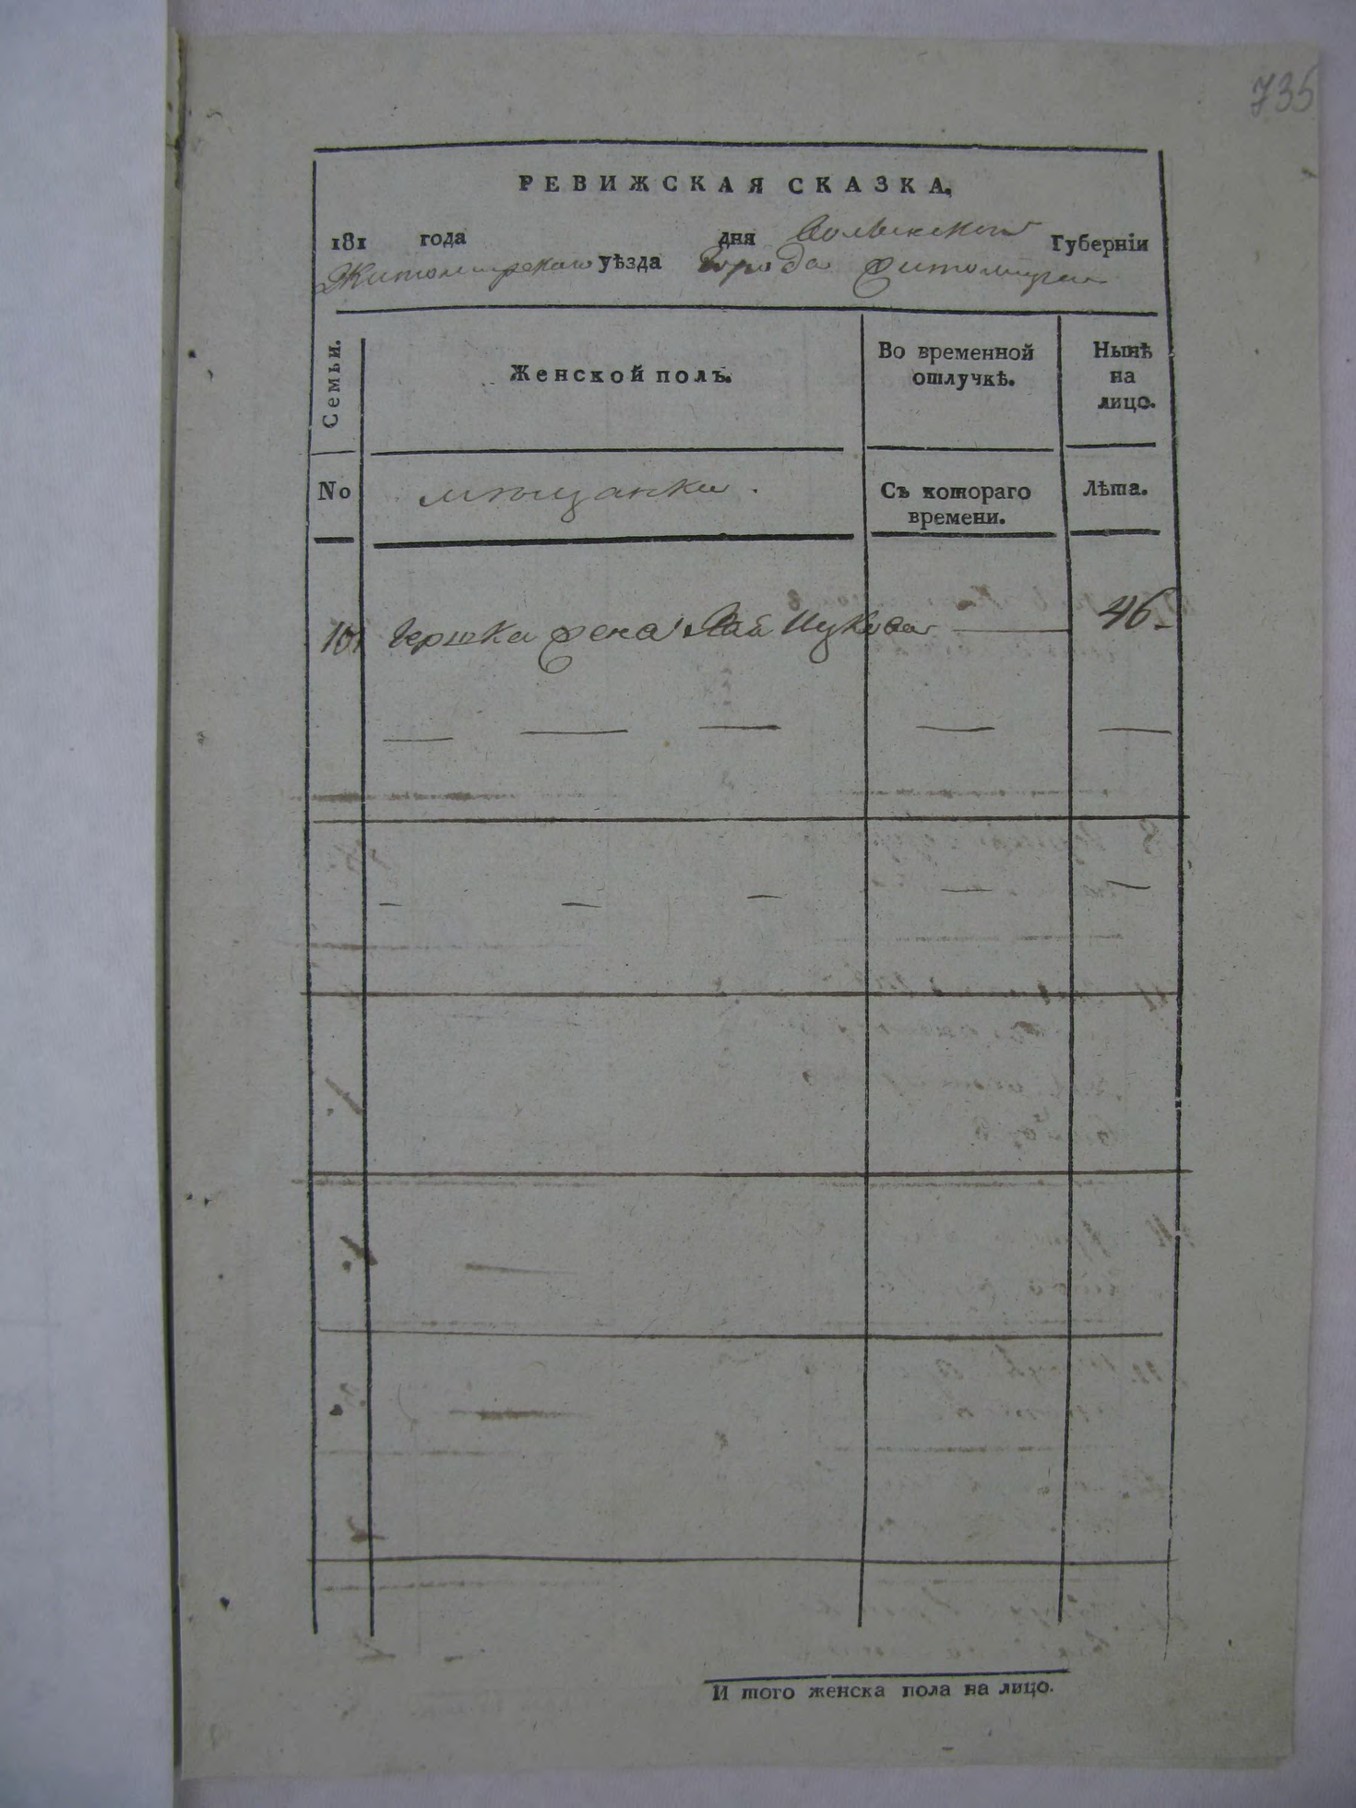 735
РЕВИЖСКАЯ СКАЗКА,
181 года дня Волынской Губерніи
Житомирскаго уѣзда Города Житомира
Семьи.
Женской полъ.
Во временной отлучкѣ.
Нынѣ на лицо.
No
мѣщанки.
Съ котораго времени.
Лѣта.
101 Гершка жена Хая Ицкова — 46
И того женска пола на лицо.